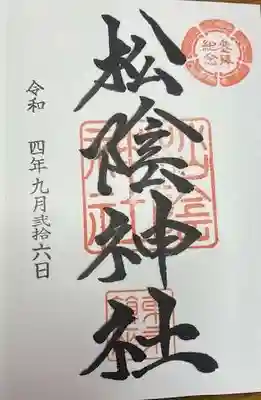 登拝
記念
松陰神社
令和 四年九月弐拾六日